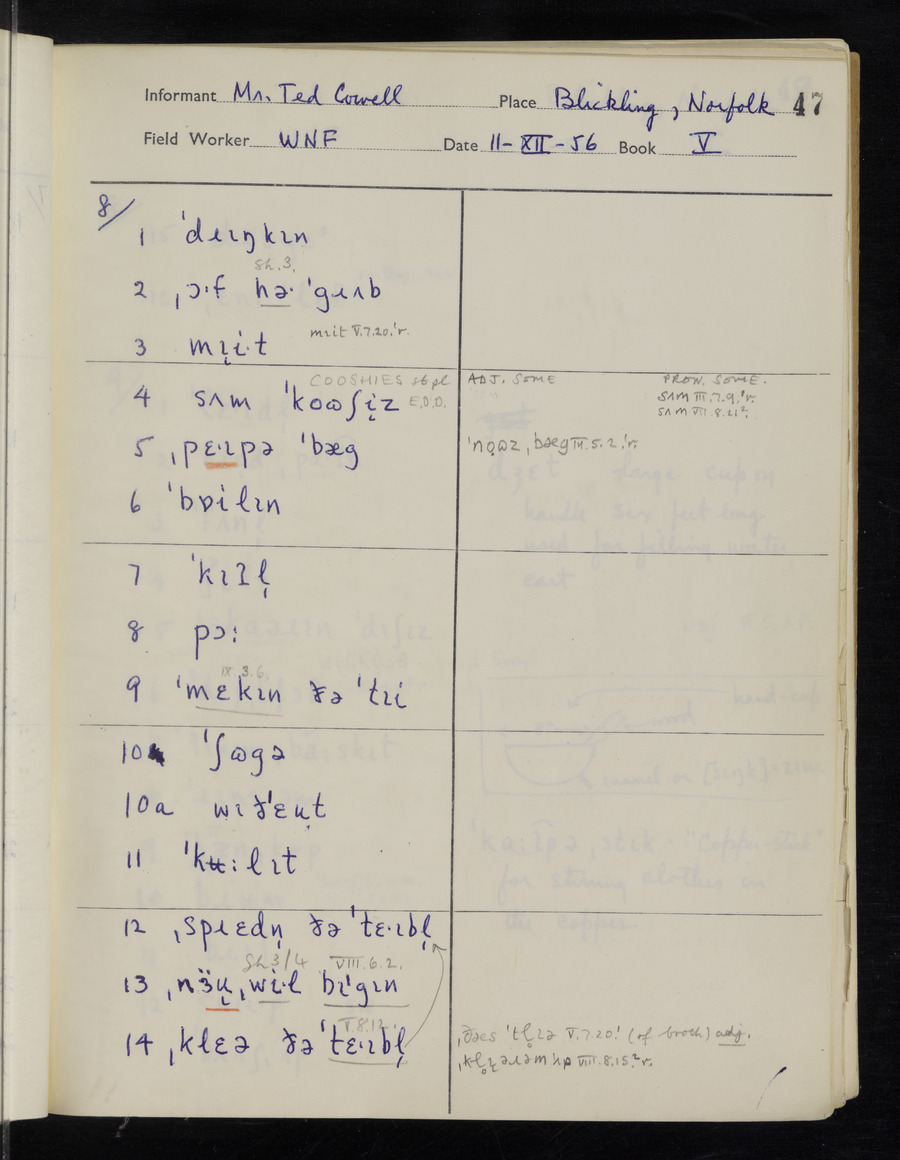 Informant Mr. Ted Cowell Place Blickling, Norfolk 47
Field Worker WNF Date 11-XII-56 Book V
8/
1 ˈdɹɪŋkɪn
Sh. 3.
2 ˌɔ·f hə·ˈgɹʌb
3 mɪ̣i·t mɪit V.7.20.ˈr.
COOSHIES sb pl E.D.D.
4 sʌm ˈkoʊʃi̜z
ADJ. SOME PRON. SOME.
sʌm III.7.9.ˈr.
sʌm VII.8.11².
5 ˌpɛ·ɪpə ˈbæg ˈno̜ʊz ˌbæg III.5.2.ˈr.
6 ˈbɒilɪn
7 ˈkɪtl̩
8 pɔ:
IX.3.6.
9 ˈmɛkɪn ðə ˈtɪi
10 ˈʃʊgə
10a wɪðˈɛʉt
11 ˈkʉ:lɪt
12 ˌspɹɛdn̩ ðə ˈtɛ·ɪbl̩
Sh 3/4 VIII.6.2.
13 ˌnɜ̈ʉ ˌwi·l bɪˈgɪn
V.8.12.
14 ˌklɛə ðə ˈtɛ·ɪbl̩
ˌðæs ˈtl̥ɪə V.7.20ˈ. (of broth) adj.
VIII.8.15².r.